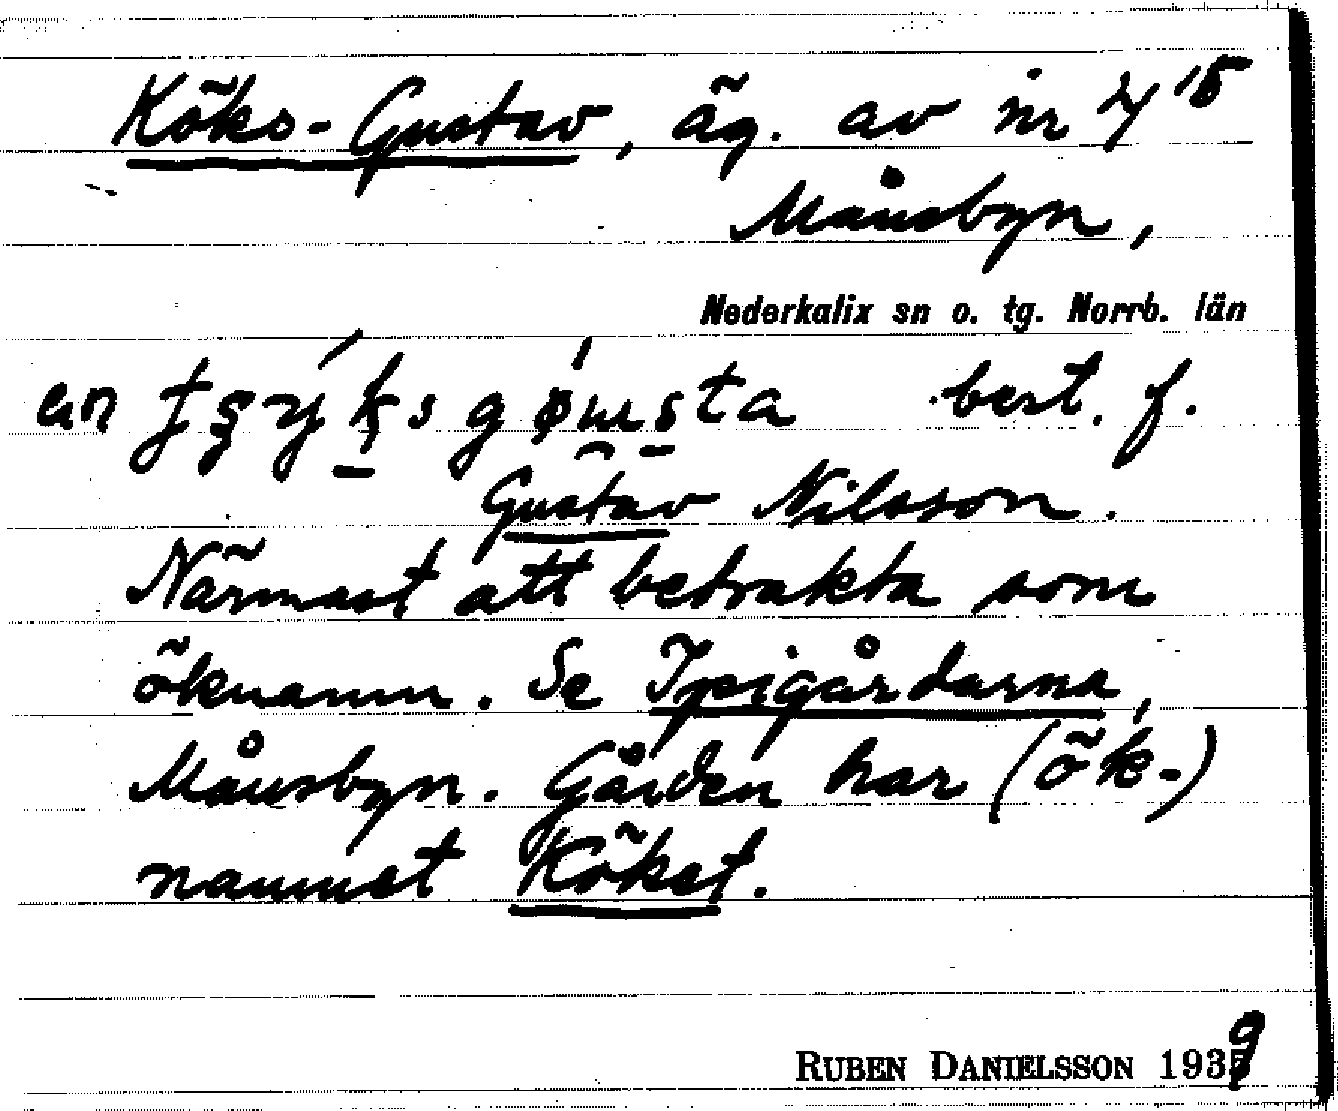 Köks-Gustav, äg. av nr 4¹⁵
Månsbyn,
Nederkalix sn o. tg. Norrb. län
en best. f.
Gustav Nilsson.
Närmast att betrakta som
öknamn. Se Ipsigårdarna,
Månsbyn. Gården har (ök-)
namnet Kökst.
RUBEN DANIELSSON 1939